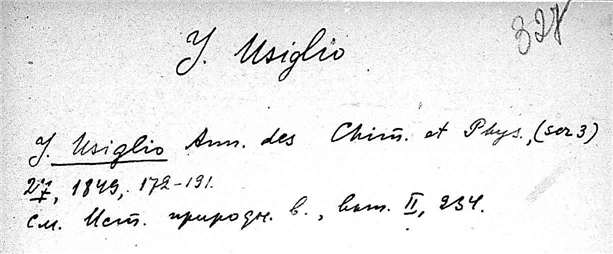 328
J. Usiglio
J. Usiglio Ann. des Chim. et Phys., (ser 3)
27, 1849, 172-191.
См. Ист. природн. в., вып. II, 234.